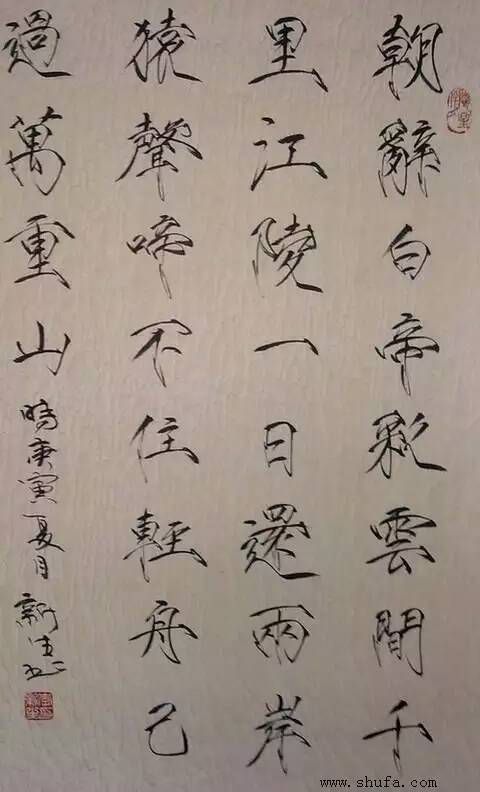 朝辭白帝彩雲間千
里江陵一日還兩岸
猿聲啼不住輕舟已
過萬重山
時庚寅夏月 新
www.shufa.com